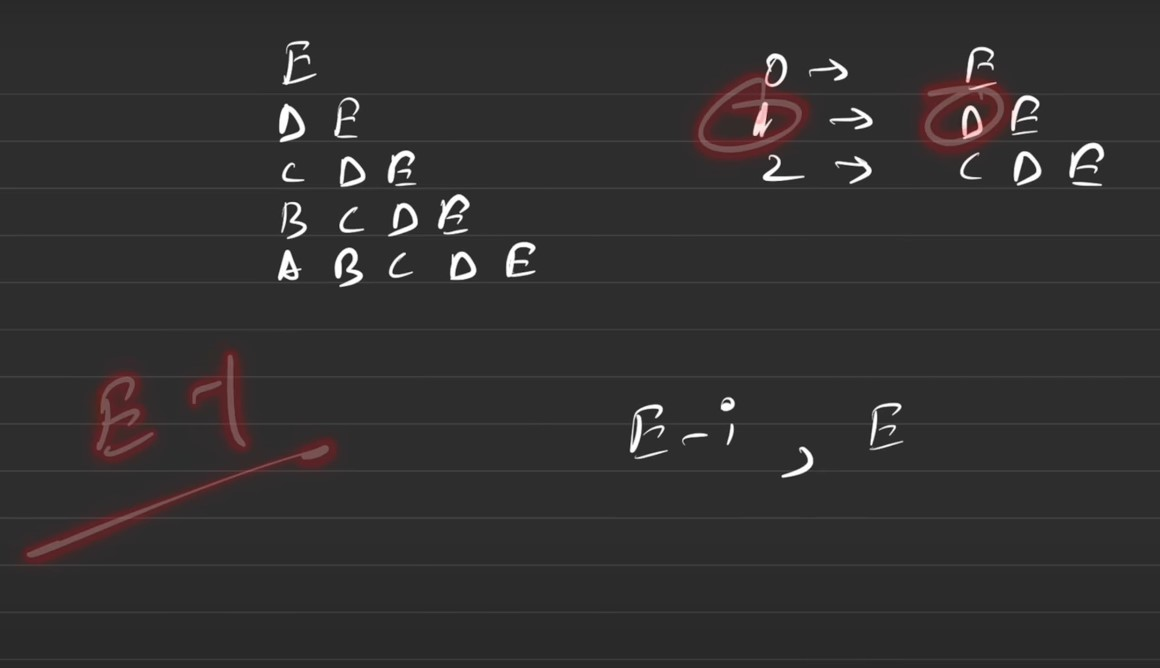 E
D E
C D E
B C D E
A B C D E
0 → E
1 → D E
2 → C D E
E - 1
E - i , E